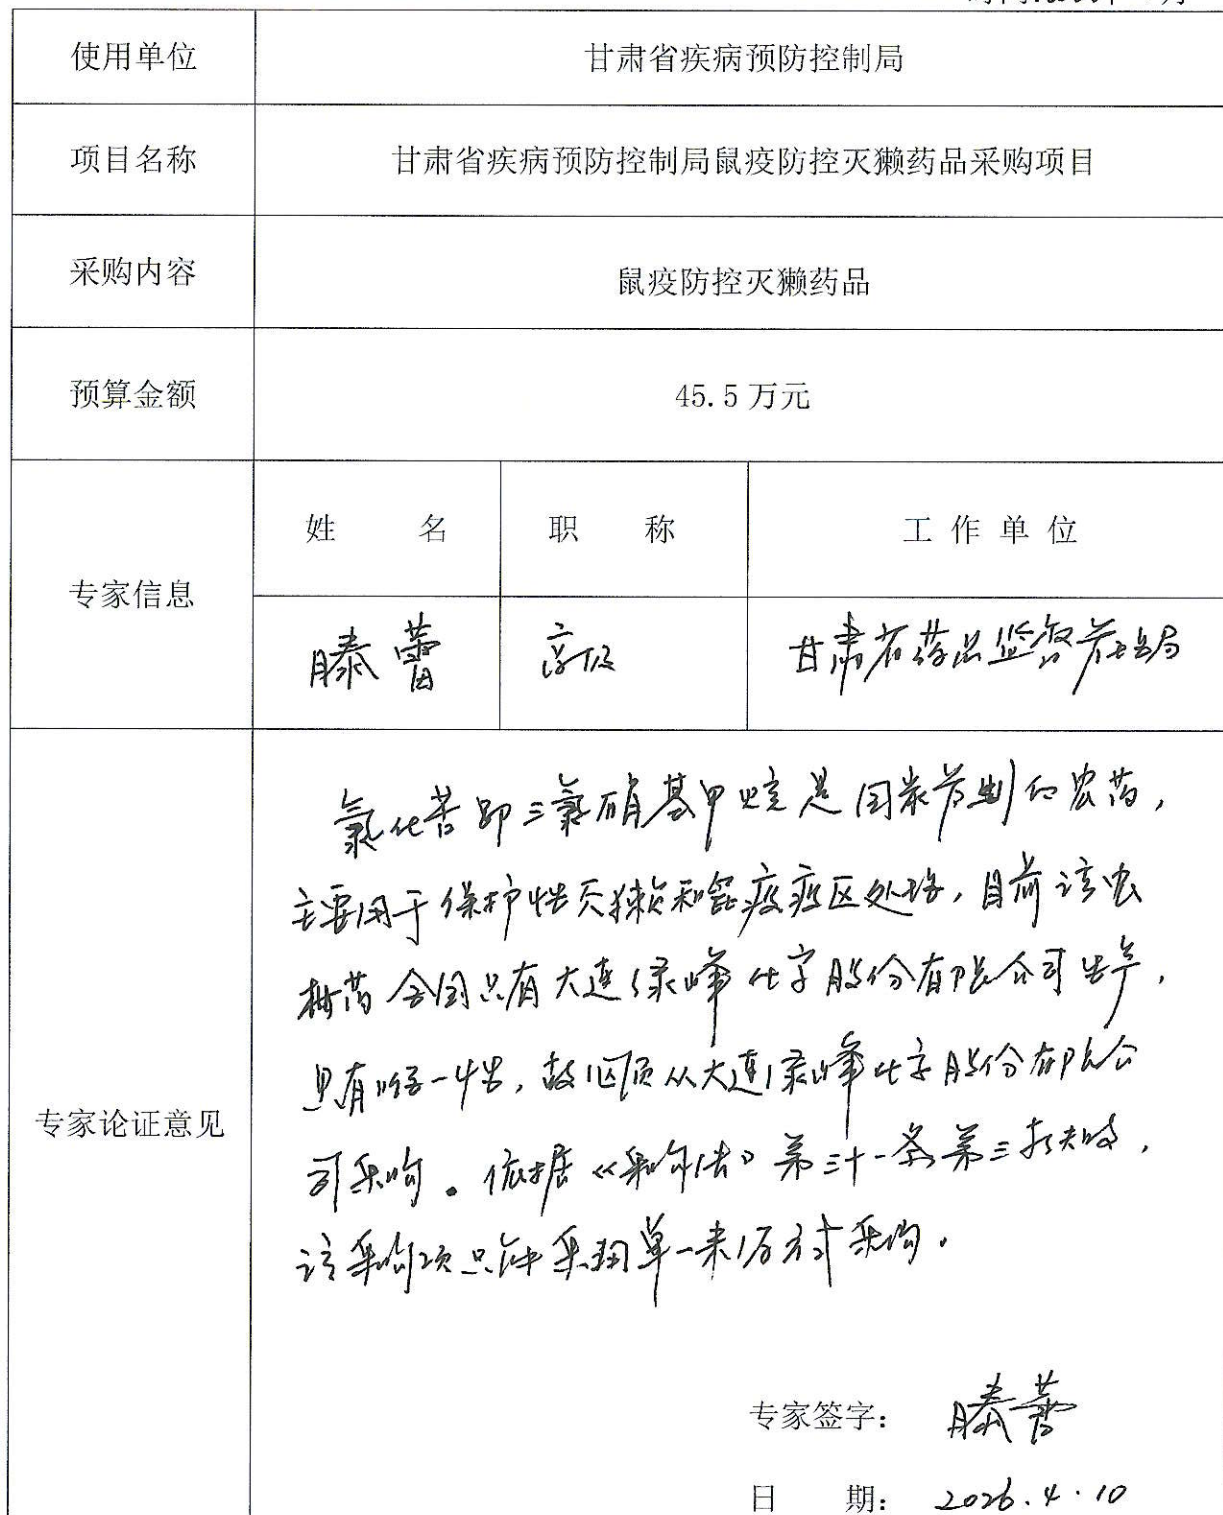 使用单位 甘肃省疾病预防控制局
项目名称 甘肃省疾病预防控制局鼠疫防控灭獭药品采购项目
采购内容 鼠疫防控灭獭药品
预算金额 45.5万元
专家信息
姓 名 职 称 工作单位
滕蕾 高级 甘肃省药品监督管理局
专家论证意见
氯化苦即三氯硝基甲烷是国家管制的农药，
主要用于保护性灭獭和鼠疫疫区处理，目前该农
药全国只有大连绿峰化学股份有限公司生产，
具有唯一性，故必须从大连绿峰化学股份有限公
司采购。依据《采购法》第三十一条第三款，
该采购项只能采用单一来源方式采购。
专家签字： 滕蕾
日 期： 2026.4.10